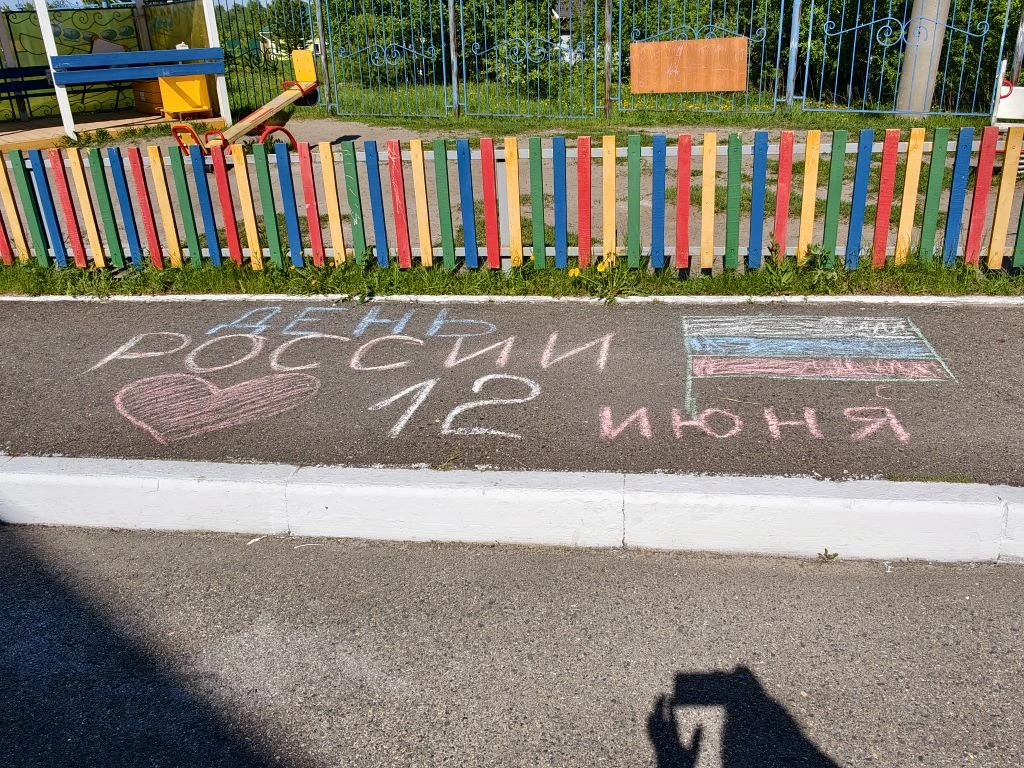 ДЕНЬ
РОССИИ
12 ИЮНЯ